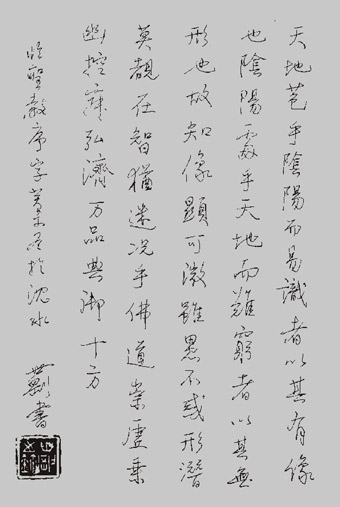 天地苞乎陰陽而易識者以其有像
也陰陽處乎天地而難窮者以其無
形也故知像顯可徵雖愚不惑形潛
莫覩在智猶迷況乎佛道崇虛乘
幽控寂弘濟万品典御十方
臨聖教序字於沈水
劉書